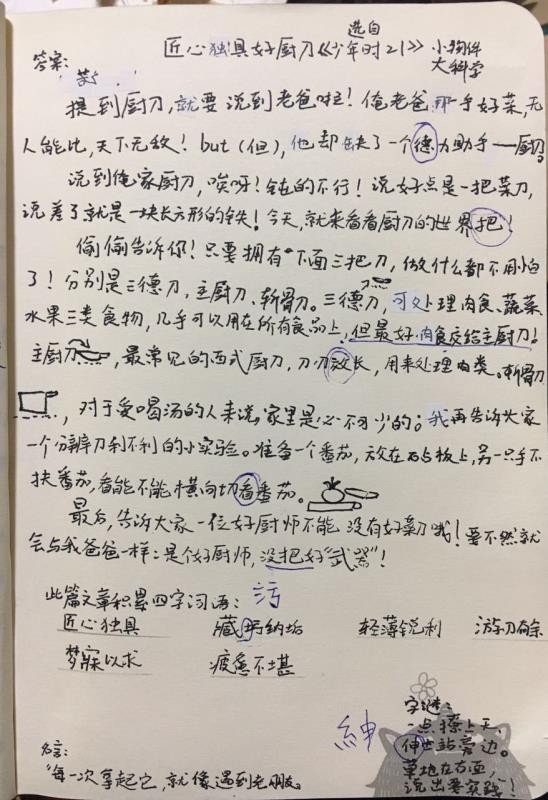 选自
匠心独具好厨刀《少年时21》小物件
大科学
答案:
提到厨刀,就要说到老爸啦!俺老爸那一手好菜,无
人能比,天下无敌!but(但),他却缺了一个德力助手——厨刀。
说到俺家厨刀,唉呀!钝的不行!说好点是一把菜刀,
说差了就是一块长方形的铁!今天,就来看看厨刀的世界把!
偷偷告诉你!只要拥有下面三把刀,做什么都不用怕
了!分别是三德刀、主厨刀、斩骨刀。三德刀,可处理肉食、蔬菜、
水果三类食物,几乎可以用在所有食品上,但最好肉食交给主厨刀!
主厨刀,最常见的西式厨刀,刀刃较长,用来处理肉类。斩骨刀
,对于爱喝汤的人来说,家里是必不可少的。我再告诉大家
一个分辨刀利不利的小实验。准备一个番茄,放在砧板上,另一只手不
扶番茄,看能不能横向切看番茄。
最后,告诉大家一位好厨师不能没有好菜刀哦!要不然就
会与我爸爸一样:是个好厨师,没把好“武器”!
此篇文章积累四字词语: 污
匠心独具 藏垢纳垢 轻薄锐利 游刃有余
梦寐以求 疲惫不堪
紳
字谜:
一点撩上天,
伸也站旁边。
草地在右面,
说出要实践!
名言:
“每一次拿起它,就像遇到老朋友。